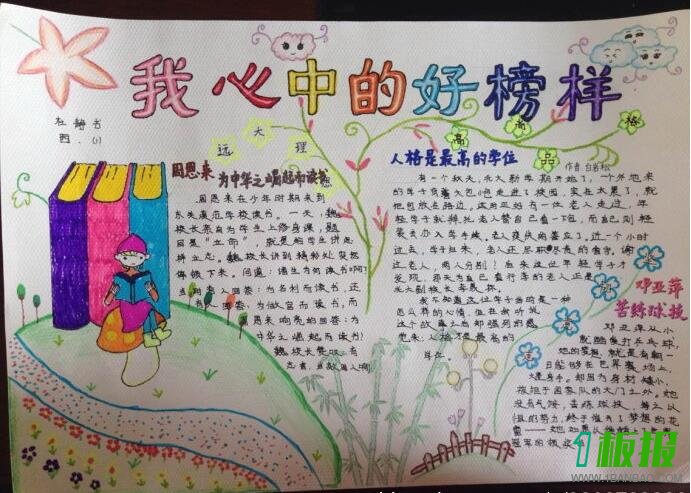 我心中的好榜样
杜静书
四.(1)
远大理
高尚品格
周恩来
为中华之崛起而读书
周恩来在少年时期来到
东关模范学校读书。一天，魏
校长亲自为学生上修身课，题
目是“立命”，就是为学生讲怎
样立志。魏校长讲到精彩处突然
停顿下来。问道：诸生为何读书啊？
有人回答：为名利而读书，还
有人回答：为做官而读书，而
周恩来响亮的回答：为
中华之崛起而读书！
魏校长赞叹：有
志者，当效周生啊
人格是最高的学位
作者：白岩松
有一个秋天，北大新学期开始了，一个外地来
的学子背着大包小包走进了校园，实在太累了，就
把包放在路边。这时正好有一位老人走过，年
轻学子就拜托老人替自己看一下包，而自己则轻
装去办入学手续。老人爽快地答应了。近一个小时
过去，学子归来，老人还尽职尽责的看守。谢
过老人，两人分别？后来这位年轻学子才
发现，那天为自己看行李的老人正是
北大副校长季羡林。
我不知道这位学子当时是一种
怎么样的心情，但在我听说
这个故事之后却强烈的感
觉来：人格才是最高的
学位。
刻苦
邓亚萍
苦练球技
邓亚萍从小
就酷爱打乒乓球，
她的梦想，就是有朝一
日能够在世界赛场上
大显身手。却因为身材矮小，
被拒于国家队的大门之外。她
没有气馁，苦练球技，持之以
恒的努力，终于催开了梦想的花
蕾——她如愿以偿站上了世界
冠军的领奖
1板报
WWW.1BANBAO.COM